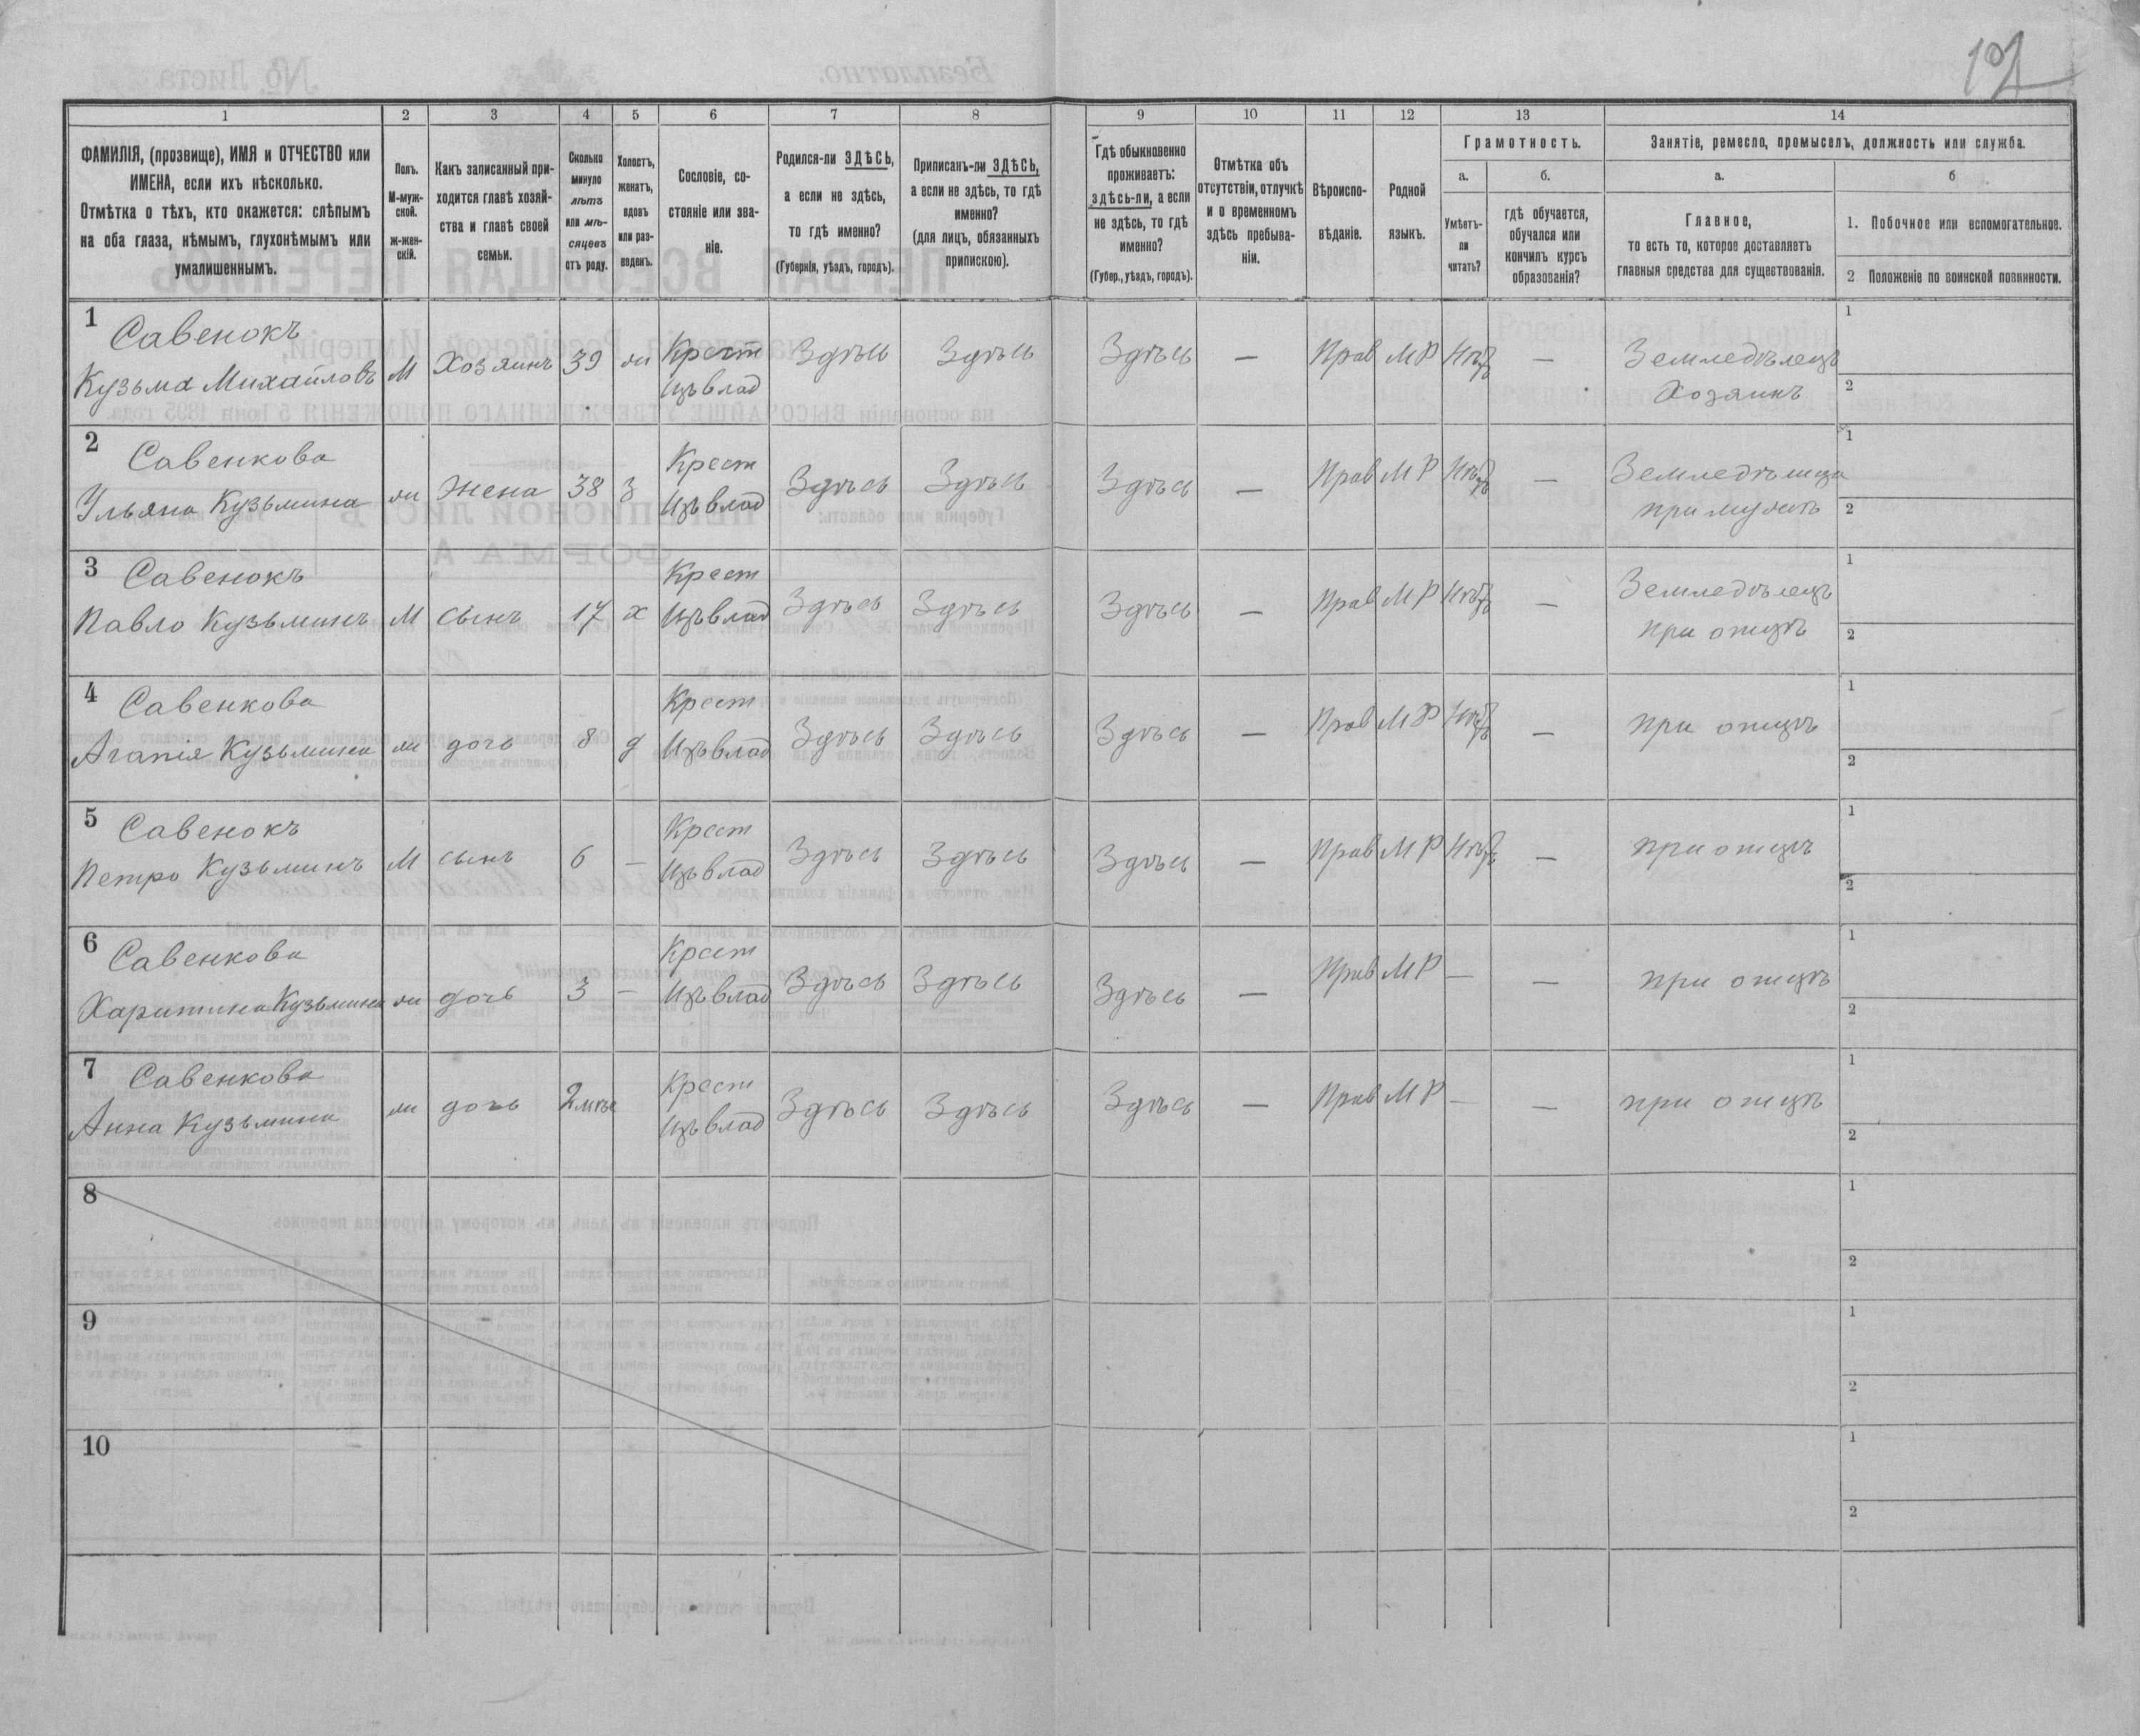 102
1 2 3 4 5 6 7 8 9 10 11 12 13 14
ФАМИЛІЯ, (прозвище), ИМЯ и ОТЧЕСТВО или
ИМЕНА, если ихъ нѣсколько.
Отмѣтка о тѣхъ, кто окажется: слѣпымъ
на оба глаза, нѣмымъ, глухонѣмымъ или
умалишеннымъ.
Полъ.
М-муж-
ской.
ж-жен-
скій.
Какъ записанный при-
ходится главѣ хозяй-
ства и главѣ своей
семьи.
Сколько
минуло
лѣтъ
или мѣ-
сяцевъ
отъ роду.
Холостъ,
женатъ,
вдовъ
или раз-
веденъ.
Сословіе, со-
стояніе или зва-
ніе.
Родился-ли ЗДѢСЬ,
а если не здѣсь,
то гдѣ именно?
(Губернія, уѣздъ, городъ).
Приписанъ-ли ЗДѢСЬ,
а если не здѣсь, то гдѣ
именно?
(для лицъ, обязанныхъ
припискою).
Гдѣ обыкновенно
проживаетъ:
здѣсь-ли, а если
не здѣсь, то гдѣ
именно?
(Губер., уѣздъ, городъ).
Отмѣтка объ
отсутствіи, отлучкѣ
и о временномъ
здѣсь пребыва-
ніи.
Вѣроиспо-
вѣданіе.
Родной
языкъ.
Грамотность.
а.
Умѣетъ-
ли
читать?
б.
гдѣ обучается,
обучался или
кончилъ курсъ
образованія?
Занятіе, ремесло, промыселъ, должность или служба.
а.
Главное,
то есть то, которое доставляетъ
главныя средства для существованія.
б
1. Побочное или вспомогательное.
2 Положеніе по воинской повинности.
1 Савенокъ
Кузьма Михайловъ М Хозяинъ 39 ж Крест Здѣсь Здѣсь Здѣсь — Прав М Р Нѣтъ — Земледѣлецъ 1
Изъ влад Хозяинъ 2
2 Савенкова Крест
Ульяна Кузьмина ж Жена 38 з Изъ влад Здѣсь Здѣсь Здѣсь — Прав М Р Нѣтъ — 1
при мужѣ 2
3 Савенокъ Крест
Павло Кузьминъ М сынъ 17 х Изъ влад Здѣсь Здѣсь Здѣсь — Прав М Р Нѣтъ — Земледѣлецъ 1
при отцѣ 2
4 Савенкова Крест
Агапія Кузьмина ж дочь 8 д Изъ влад Здѣсь Здѣсь Здѣсь — Прав М Р Нѣтъ — при отцѣ 1
2
5 Савенокъ Крест
Петро Кузьминъ М сынъ 6 — Изъ влад Здѣсь Здѣсь Здѣсь — Прав М Р Нѣтъ — при отцѣ 1
2
6 Савенкова Крест
Харитина Кузьмина ж дочь 3 — Изъ влад Здѣсь Здѣсь Здѣсь — Прав М Р — — при отцѣ 1
2
7 Савенкова Крест
Анна Кузьмина ж дочь 2 мѣс Изъ влад Здѣсь Здѣсь Здѣсь — Прав М Р — — при отцѣ 1
2
8 1
2
9 1
2
10 1
2